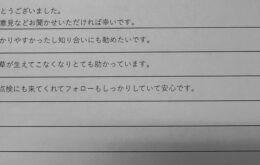 とうございました。
意見などお聞かせいただければ幸いです。
かりやすかったし知り合いにも勧めたいです。
草が生えてこなくなりとても助かっています。
点検にも来てくれてフォローもしっかりしていて安心です。